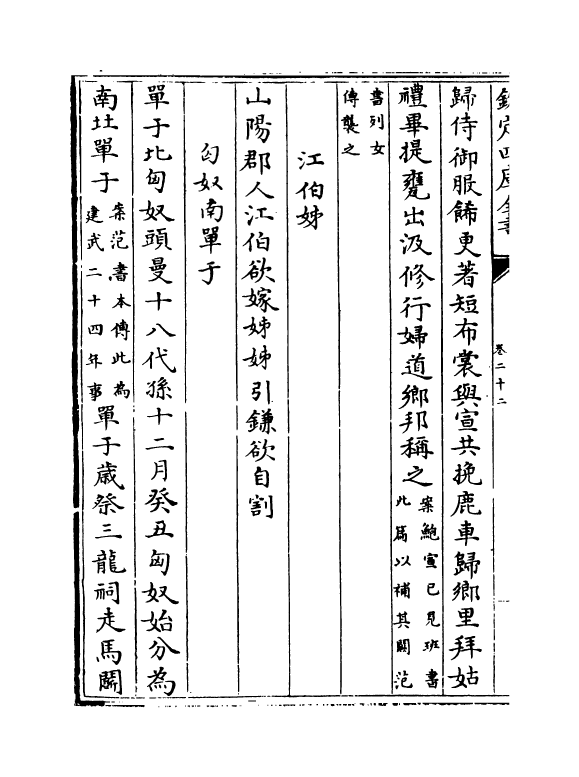 欽定四庫全書
卷二十二
歸侍御服飾更著短布裳與宣共挽鹿車歸鄉里拜姑
禮畢提甕出汲修行婦道鄉邦稱之案鮑宣已見班書此篇以補其闕范
書列女傳襲之
江伯姊
山陽郡人江伯欲嫁姊姊引鐮欲自割
匈奴南單于
單于比匈奴頭曼十八代孫十二月癸丑匈奴始分為
南北單于案范書本傳此為建武二十四年事單于歲祭三龍祠走馬鬭